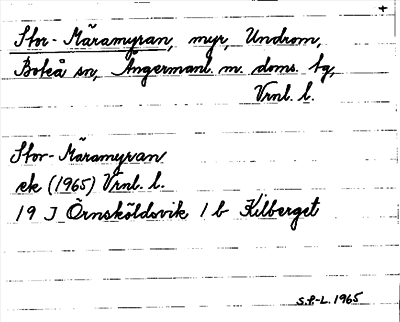 +
Stor-Märamyran, myr, Undrom,
Boteå sn, Ångermanl. m. doms. tg,
Vrnl. l.
Stor-Märamyran
ek (1965) Vrnl. l.
19 J Örnsköldsvik 1 b Kilberget
S.F-L. 1965